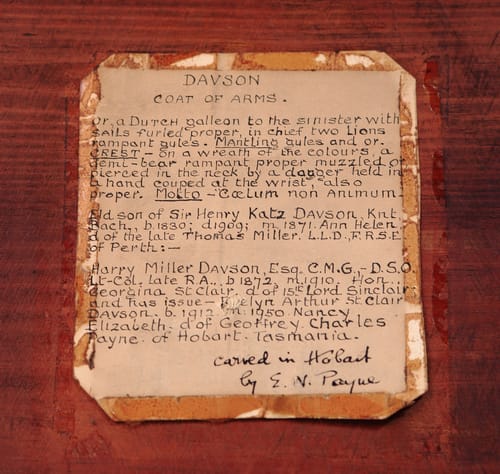 DAVSON
COAT OF ARMS.
Or, a DUTCH galleon to the sinister with
sails furled proper, in chief two Lions
rampant gules. MANtling gules and or.
CREST - on a wreath of the colours, a
demi-bear rampant proper muzzled or
pierced in the neck by a dagger held in
a hand couped at the wrist, also
proper. Motto - Cœlum non Animum
Eld son of Sir Henry Katz DAVSON, Knt.
Bach., b.1830; d1909; m.1871. Ann Helen
d of the late Thomas Miller. L.L.D., F.R.S.E.
of Perth:-
Harry Miller DAVSON, Esq. C.M.G., - D.S.O.
Lt-Col. late R.A., b 1872, m.1910. Hon.
Georgina St Clair. d of 15th Lord Sinclair
and has issue - Evelyn Arthur St Clair
DAVSON. b. 1912 m. 1950 Nancy
Elizabeth. d of Geoffrey Charles
Payne. of Hobart. Tasmania.
carved in Hobart
by E. N. Payne